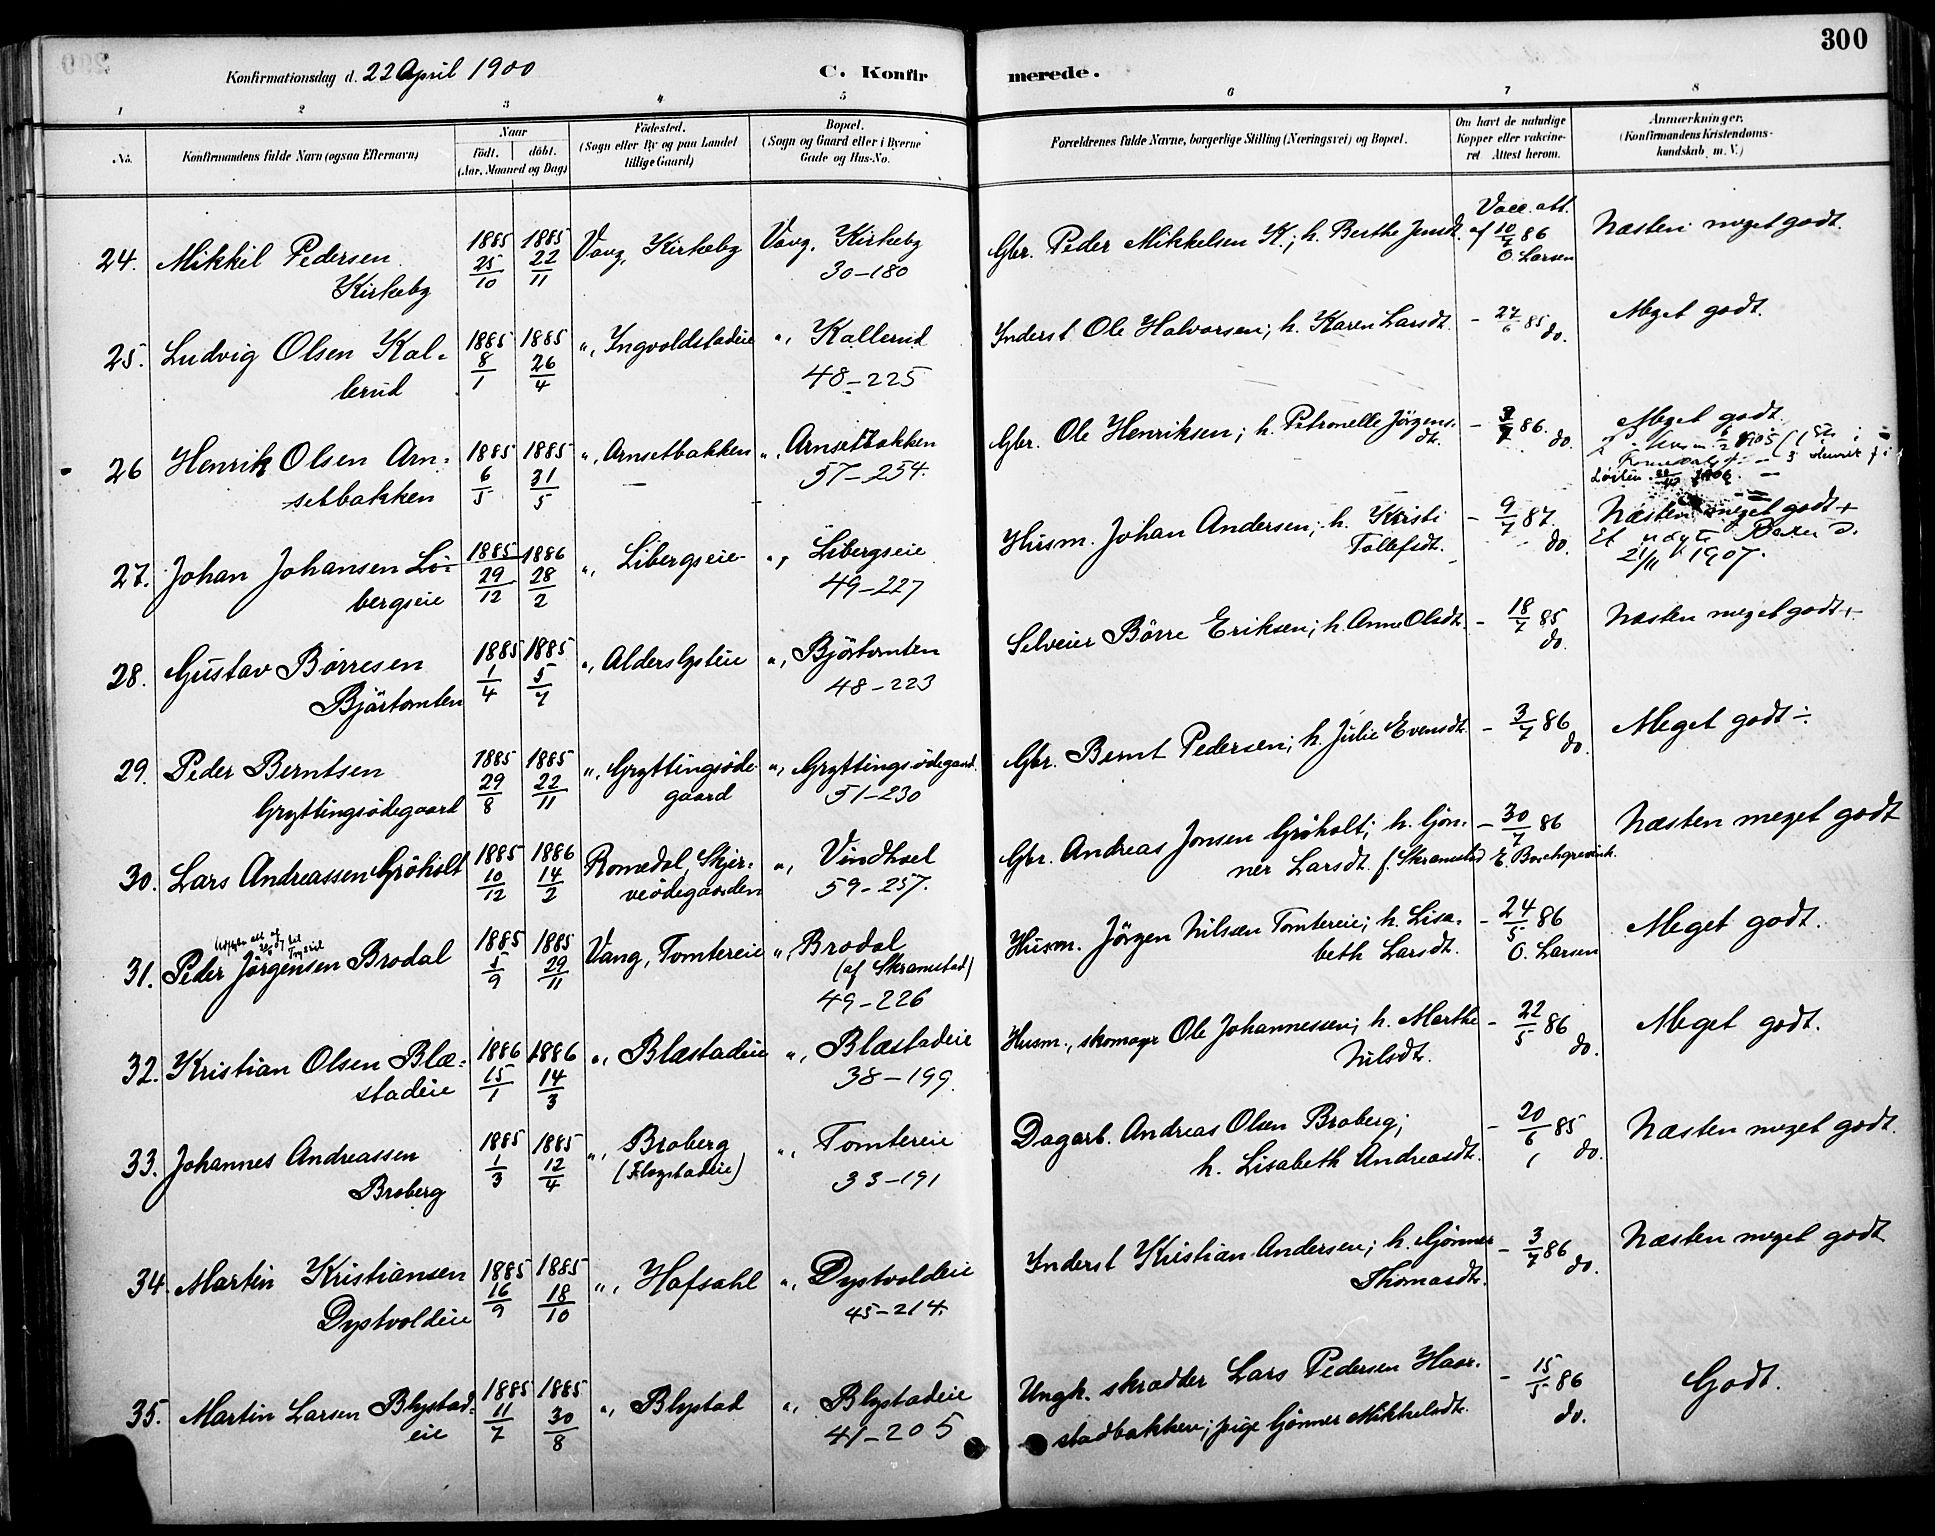 300
Konfirmationsdag d. 22 April 1900 C. Konfirmerede.
1 2 3 4 5 6 7 8
No.
Konfirmandens fulde Navn (ogsaa Efternavn)
Naar
födt. döbt.
(Aar, Maaned og Dag)
Födested.
(Sogn eller By og paa Landet
tillige Gaard)
Bopæl.
(Sogn og Gaard eller i Byerne
Gade og Hus-No.
Forældrenes fulde Navne, borgerlige Stilling (Næringsvei) og Bopæl.
Om havt de naturlige
Kopper eller vakcine-
ret Attest herom.
Anmærkninger.
(Konfirmandens Kristendoms-
kundskab, m. V.)
24. Mikkil Pedersen
Kirkeby
1885 25/10 1885 22/11
Vang, Kirkeby
Vang, Kirkeby
30-180
Gbr. Peder Mikkelsen K.; h. Berthe Jensdt.
Vacc. att.
af 10/7 86
O. Larsen
Næsten meget godt.
25. Ludvig Olsen Kal-
lerud
1885 8/1 1885 26/4
", Ingvoldstadeie
", Kallerud
48-225
Inderst Ole Halvorsen; h. Karen Larsdt.
- 27/6 85
do.
Meget godt.
26 Henrik Olsen Arn-
setbakken
1885 6/5 1885 31/5
", Arnsetbakken
", Arnsetbakken
57-254.
Gbr. Ole Henriksen; h. Petronelle Jörgens-
dt.
- 86.
do.
Meget godt.
27. Johan Johansen Li-
bergseie
1885 29/12 1886 28/2
", Libergseie
", Libergseie
49-227
Husm. Johan Andersen; h. Kristi
Tollefsdt.
- 9/7 87.
do.
Næsten meget godt+
21/11 1907.
28. Gustav Börresen
Björtomten
1885 1/4 1885 5/7
", Alderslysteie
", Björtomten
48-223
Selveier Börre Eriksen; h. Anne Olsdt.
- 18/7 85
do.
Næsten meget godt+
29. Peder Berntsen
Gryttingsödegaard
1885 29/8 1885 22/11
", Gryttingsöde-
gaard
", Gryttingsödegaard.
51-230
Gbr. Bernt Pedersen; h. Julie Evensdt.
- 3/7 86
do.
Meget godt ÷
30. Lars Andreassen Gröholt
1885 10/12 1886 14/2
Romedal, Skjer-
veödegaarden
", Vindhoel
59-257.
Gbr. Andreas Jonsen Gröholt; h. Gön-
ner Larsdt. f. Skramstad
- 30/7 86
E. Borchgrevink.
Næsten meget godt
31. Peder Jörgensen Brodal
1885 5/9 1885 29/11
Vang, Tomtereie
", Brodal
(af Skramstad)
49-226
Husm. Jörgen Nilsen Tomtereie; h. Lisa-
beth Larsdt.
- 24/5 86
O. Larsen
Meget godt.
32. Kristian Olsen Blæ-
stadeie
1886 15/1 1886 14/3
", Blæstadeie
", Blæstadeie
38-199.
Husm., skomager Ole Johannessen; h. Marthe
Nilsdt.
- 22/5 86
do.
Meget godt.
33. Johannes Andreassen
Broberg
1885 1/3 1885 12/4
", Broberg
(Flagstadeie)
", Tomtereie
33-191
Dagarb. Andreas Olsen Broberg;
h. Lisabeth Andreasdt.
- 20/6 85
do.
Næsten meget godt.
34. Martin Kristiansen
Dystvoldeie
1885 16/9 1885 18/10
", Hafsahl
", Dystvoldeie
45-214.
Inderst Kristian Andersen; h. Gjönner
Thomasdt.
- 3/7 86
do.
Næsten meget godt
35. Martin Larsen Blystad-
eie
1885 11/7 1885 30/8
", Blystad
", Blystadeie
41-205
Ungk. skrædder Lars Pedersen Haar-
stadbakken; pige Gönner Mikkelsdt.
- 15/5 86
do.
Godt.